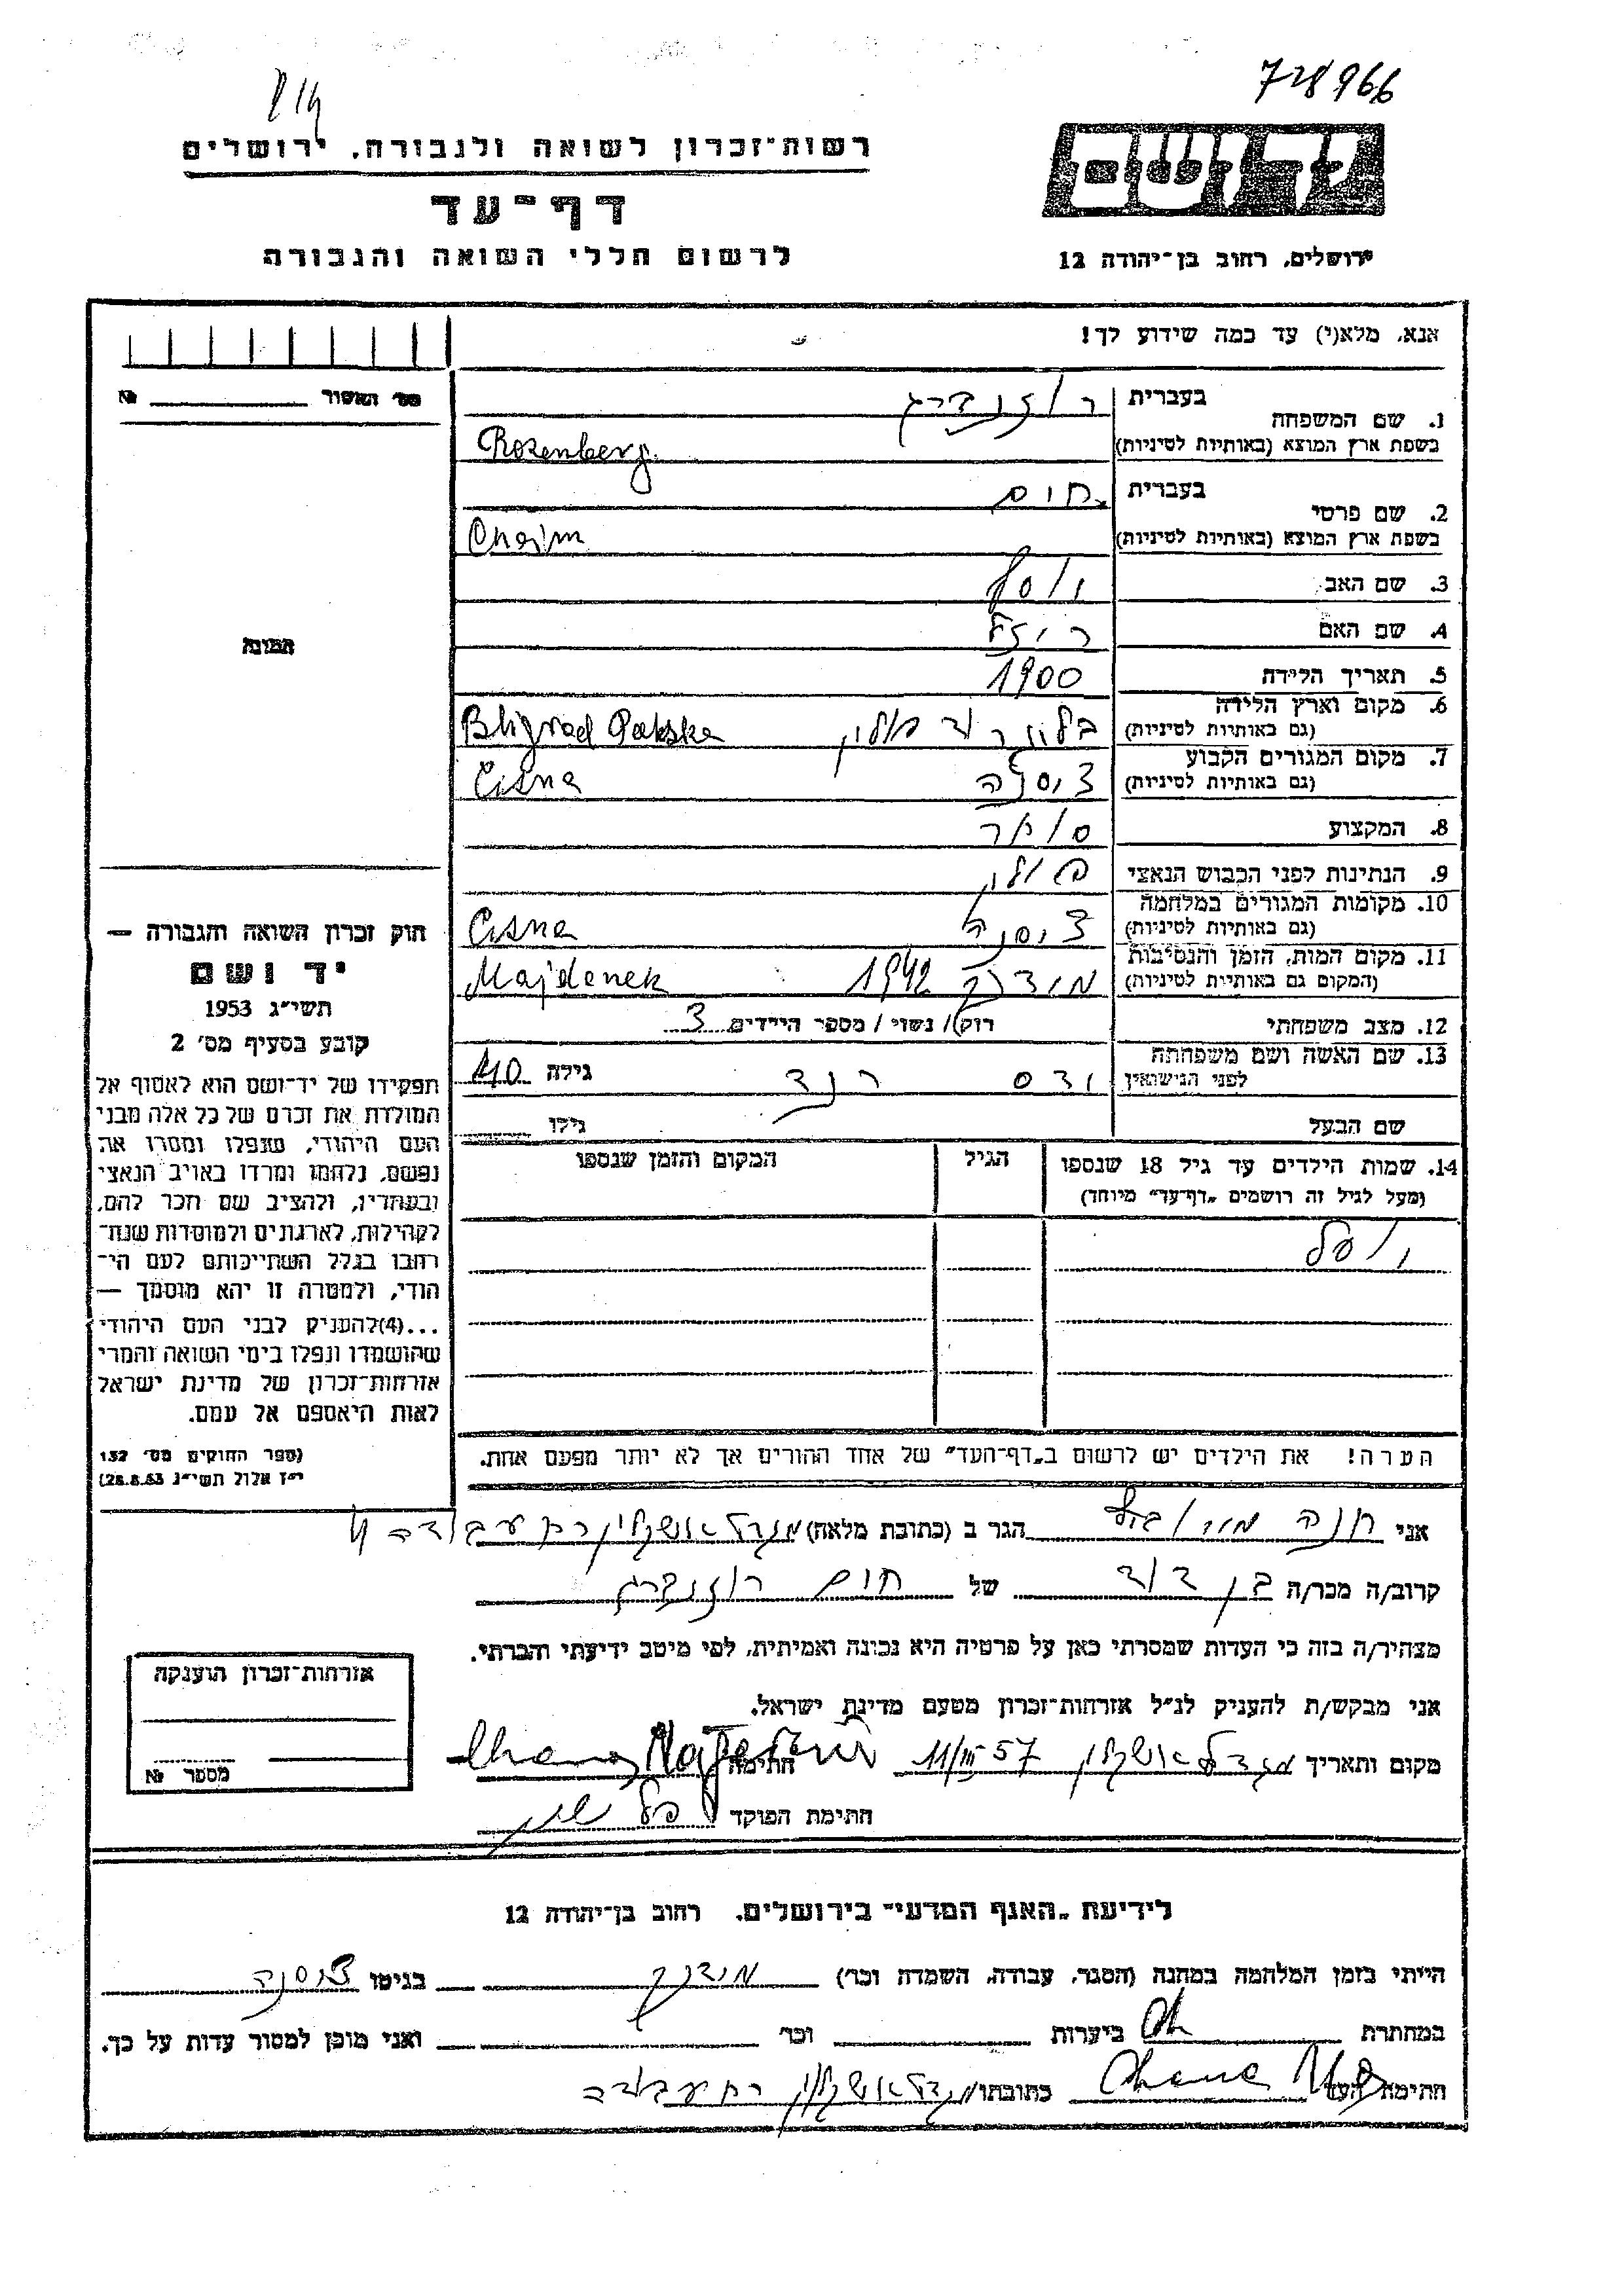 728966
רשות־זכרון לשואה ולגבורה, ירושלים
דף־עד
לרשום חללי השואה והגבורה
ירושלים, רחוב בן־יהודה 12
אנא, מלא(י) עד כמה שידוע לך!
מס׳ האשור № 
1. שם המשפחה בעברית רוזנברג
בשפת ארץ המוצא (באותיות לטיניות) Rozenberg
2. שם פרטי בעברית חיים
בשפת ארץ המוצא (באותיות לטיניות) Chaim
3. שם האב יוסף
4. שם האם רייזל
5. תאריך הלידה 1900
6. מקום וארץ הלידה
(גם באותיות לטיניות) פולין Polska
7. מקום המגורים הקבוע
(גם באותיות לטיניות) Cisna
8. המקצוע סוחר
9. הנתינות לפני הכבוש הנאצי פולין
10. מקומות המגורים במלחמה
(גם באותיות לטיניות) Cisna
11. מקום המות, הזמן והנסיבות
(המקום גם באותיות לטיניות) 1942 Majdenek
12. מצב משפחתי רוק/ נשוי / מספר הילדים 3
13. שם האשה ושם משפחתה
לפני הנישואין גילה 40
שם הבעל גילו
14. שמות הילדים עד גיל 18 שנספו הגיל המקום והזמן שנספו
(מעל לגיל זה רושמים „דף־עד” מיוחד)
הערה! את הילדים יש לרשום ב„דף־העד” של אחד ההורים אך לא יותר מפעם אחת.
תמונה
חוק זכרון השואה והגבורה —
יד ושם
תשי״ג 1953
קובע בסעיף מס׳ 2
תפקידו של יד־ושם הוא לאסוף אל
המולדת את זכרם של כל אלה מבני
העם היהודי, שנפלו ומסרו את
נפשם, נלחמו ומרדו באויב הנאצי
ובעוזריו, ולהציב שם וזכר להם,
לקהילות, לארגונים ולמוסדות שנח־
רבו בגלל השתייכותם לעם הי־
הודי, ולמטרה זו יהא מוסמך —
...(4)להעניק לבני העם היהודי
שהושמדו ונפלו בימי השואה והמרי
אזרחות־זכרון של מדינת ישראל
לאות היאספם אל עמם.
(ספר החוקים מס׳ 132
י״ז אלול תשי״ג 28.8.53)
אני חנה הגר ב (כתובת מלאה) מגדל אשקלון
קרוב/ה מכר/ה בן דוד של חיים רוזנברג
מצהיר/ה בזה כי העדות שמסרתי כאן על פרטיה היא נכונה ואמיתית, לפי מיטב ידיעתי והכרתי.
אני מבקש/ת להעניק לנ״ל אזרחות־זכרון מטעם מדינת ישראל.
מקום ותאריך מגדל אשקלון 11/III 57 חתימה Chana
חתימת הפוקד
אזרחות־זכרון הוענקה
מספר №
לידיעת „האגף המדעי” בירושלים, רחוב בן־יהודה 12
הייתי בזמן המלחמה במחנה (הסגר, עבודה, השמדה וכו׳) מידנק בגיטו
במחתרת ביערות וכו׳ ואני מוכן למסור עדות על כך.
חתימת העד Chana כתובתו מגדל אשקלון